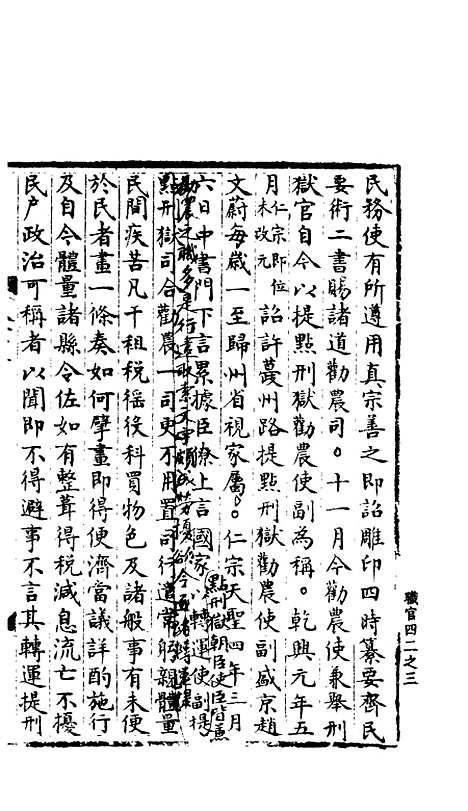 民務使有所遵用真宗善之即詔雕印四時纂要齊民
要術二書賜諸道勸農司。十一月令勸農使兼舉刑
獄官自今以提點刑獄勸農使副為稱。乾興元年五
月仁宗即位未改元詔許蔓州路提點刑獄勸農使副盛京趙
文蔚每歲一至歸州省視家屬。仁宗天聖四年三月
六日中書門下言累據臣僚上言國家以轉運使副提
點刑獄朝臣使臣皆兼
勸農之職多是行遣取索文字
點刑獄司合勸農一司更不用置司行遣常切親體量
民間疾苦凡干租税徭役科買物色及諸般事有未便
於民者畫一條奏如何擘畫即得便濟當議詳酌施行
及自今體量諸縣令佐如有整葺得税減息流亡不擾
民户政治可稱者以聞即不得避事不言其轉運提刑
職官四二之三